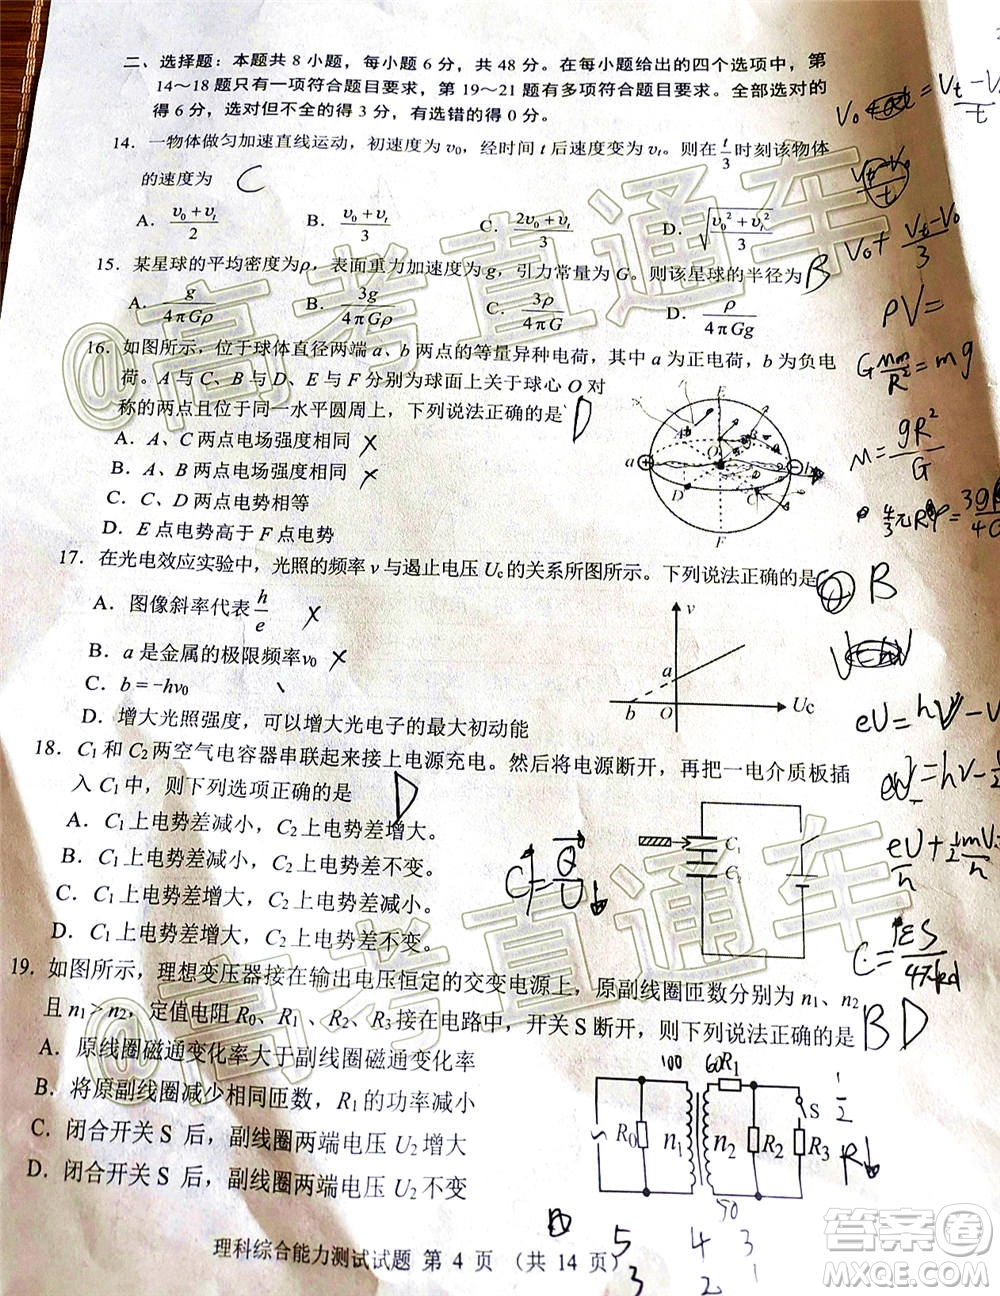 二、选择题：本题共 8 小题，每小题 6 分，共 48 分。在每小题给出的四个选项中，第
14～18 题只有一项符合题目要求，第 19～21 题有多项符合题目要求。全部选对的
得 6 分，选对但不全的得 3 分，有选错的得 0 分。
14．一物体做匀加速直线运动，初速度为 v₀，经时间 t 后速度变为 vₜ。则在 t/3 时刻该物体
的速度为 C
A. (v₀+vₜ)/2 B. (v₀+vₜ)/3 C. (2v₀+vₜ)/3 D. √((v₀²+vₜ²)/3)
15．某星球的平均密度为ρ，表面重力加速度为 g，引力常量为 G。则该星球的半径为 B
A. g/(4πGρ) B. 3g/(4πGρ) C. 3ρ/(4πG) D. ρ/(4πGg)
16．如图所示，位于球体直径两端 a、b 两点的等量异种电荷，其中 a 为正电荷，b 为负电
荷。A 与 C、B 与 D、E 与 F 分别为球面上关于球心 O 对
称的两点且位于同一水平圆周上，下列说法正确的是 D
A．A、C 两点电场强度相同 ×
B．A、C 两点电场强度相同 ×
C．C、D 两点电势相等
D．E 点电势高于 F 点电势
E
a
O
b
D
C
F
17．在光电效应实验中，光照的频率 ν 与遏止电压 Uc 的关系所图所示。下列说法正确的是 B
A．图像斜率代表 h/e ×
B．a 是金属的极限频率ν₀ ×
C．b = -hν₀
D．增大光照强度，可以增大光电子的最大初动能
ν
a
b O Uc
18．C₁ 和 C₂ 两空气电容器串联起来接上电源充电。然后将电源断开，再把一电介质板插
入 C₁ 中，则下列选项正确的是 D
A．C₁ 上电势差减小，C₂ 上电势差增大。
B．C₁ 上电势差减小，C₂ 上电势差不变。
C．C₁ 上电势差增大，C₂ 上电势差减小。
D．C₁ 上电势差增大，C₂ 上电势差不变。
C₁
19．如图所示，理想变压器接在输出电压恒定的交变电源上，原副线圈匝数分别为 n₁、n₂
且 n₁ > n₂，定值电阻 R₀、R₁ 、R₂、R₃ 接在电路中，开关 S 断开，则下列说法正确的是 BD
A．原线圈磁通变化率大于副线圈磁通变化率
B．将原副线圈减少相同匝数，R₁ 的功率减小
C．闭合开关 S 后，副线圈两端电压 U₂ 增大
D．闭合开关 S 后，副线圈两端电压 U₂ 不变
100 60 R₁
R₀ n₁ n₂ R₂ S R₃
50
5 4 3
3 2 1
理科综合能力测试试题 第 4 页 （共 14 页）
@高考直通车
@高考直通车
答案圈
MXQE.COM